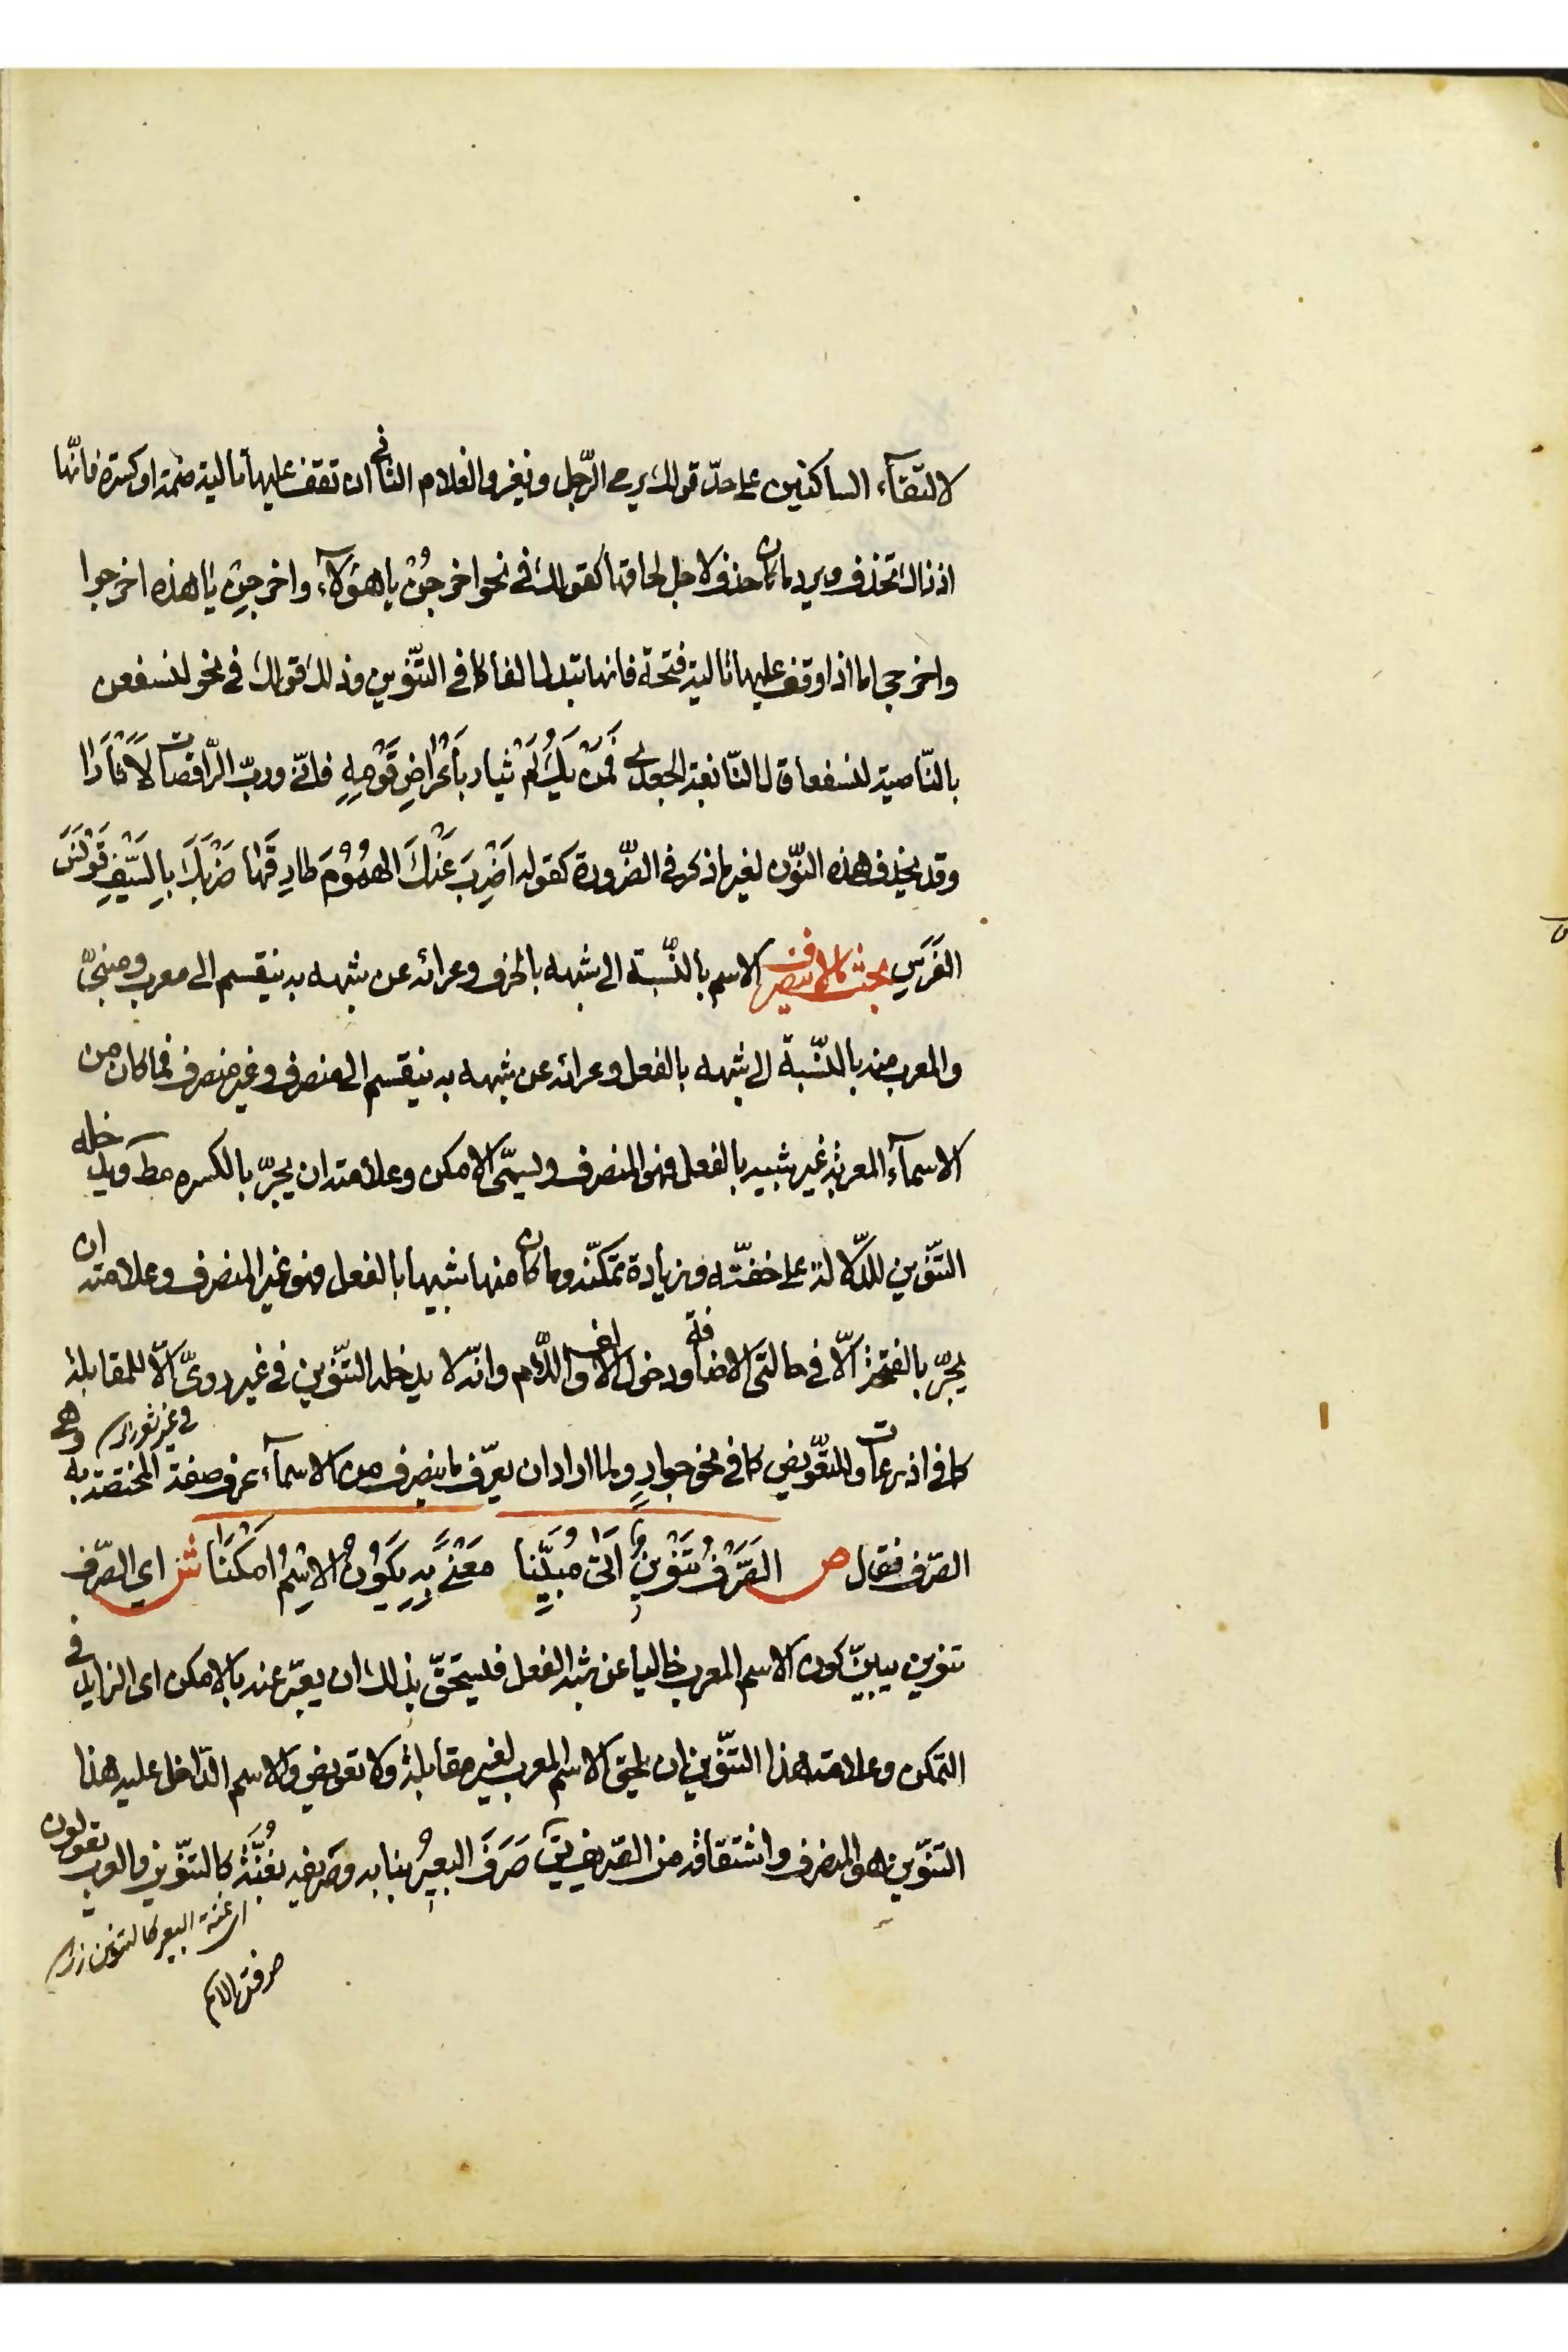 لالتقآء الساكنين على حدّ قولك يرمي الرّجل ويغزو الغلام الثاني ان تقف عليها تالية ضمة او كسرة فانّها
اذ ذاك تحذف ويرد ما كان حذف لاجل لحاقها كقولك في نحو اخرجُن يا هؤلآء واخرجِن يا هذه اخرجوا
واخرجي اما اذا وقف عليها تالية فتحة فانها تبدل الفا كما في التنّوين وذلك قولك في نحو لنسفعن
بالنّاصية لنسفعا قال النّابغة الجعدي فَمَنْ يَكُ لَمْ يثار بأَعْراضِ قَوْمِهِ فانّي وربّ الرّاقصات لَأَثْأَرَا
وقد يحذف هذه النوّن لغير ما ذكر في الضّرورة كقوله اضْرِبَ عَنْكَ الهُمُوْمَ طارِقَها ضَرْبَكَ بِالسَّيْفِ قَوْنَسَ
الفَرَسِ بحث ما لا ينصرف الاسم بالنّسبة الى شبهه بالحرف وعرائه عن شبهه به ينقسم الى معرب ومبنيّ
والمعرب منه بالنسّبة الى شبهه بالفعل وعرائه عن شبهه به ينقسم الى منصرف وغير منصرف فما كان من
الاسمآء المعربة غير شبيه بالفعل فهو المنصرف ويسمّى الامكن وعلامته ان يجرّ بالكسره مط ويدخله
التنّوين للدّلالة على خفّته وزيادة تمكنّه وما كان منها شبيها بالفعل فهو غير المنصرف وعلامته ان
يجرّ بالفتحة الّا في حالتى الاضافة ودخول الالف واللّام وانّه لا يدخله التنّوين في غير رويّ الّا للمقابلة
كما في اذرعات والتعّويض كما في نحو جوارٍ ولما اراد ان يعرّف ما ينصرف من الاسمآء عرف صفة المختصة به وهي
الصّرف فقال ص الصَّرْفُ تَنْوِينٌ اَتَى مُبَيِّنا مَعْنًى بِهِ يَكُوْنُ الاِسْمُ اَمْكَنَا ش اي الصّرف
تنوين يبيّن كون الاسم المعرب خاليا عن شبه الفعل فيستحقّ بذلك ان يعبّر عنه بالامكن اى الزايد في
التمكن وعلامة هذا التنّوين ان يلحق الاسم المعرب لغير مقابلة ولا تعويض والاسم الدّاخل عليه هذا
التنوّين هو المنصرف واشتقاقه من الصّريف يقـ صَرَفَ البعيرُ بنابه وصريفه بغُنَّة كالتنّوين والعرب تقولون
اى غنة البعير كالتنوين
صرفت الاسم